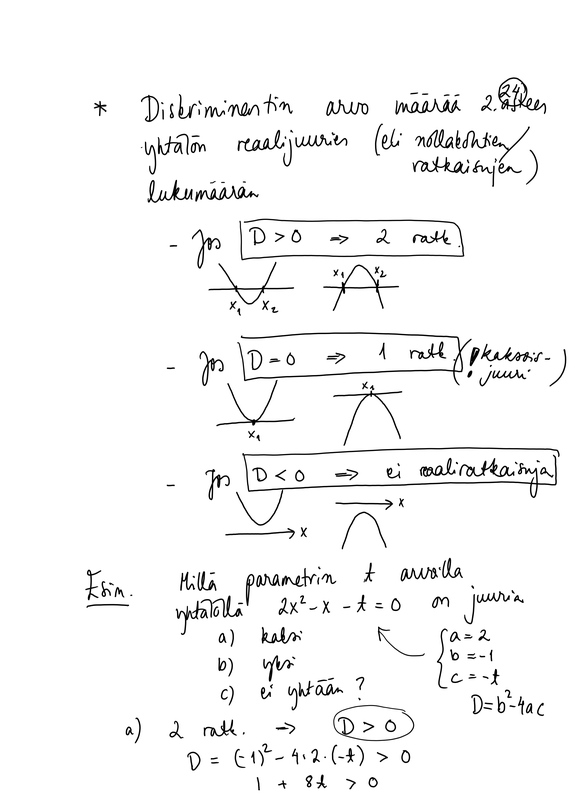 24
* Diskriminantin arvo määrää 2. asteen
yhtälön reaalijuurien (eli nollakohtien/
ratkaisujen)
lukumäärän
- Jos D > 0 ⇒ 2 ratk.
x₁ x₂ x₁ x₂
- Jos D = 0 ⇒ 1 ratk. (! kaksois-
juuri)
x₁ x₁
- Jos D < 0 ⇒ ei reaaliratkaisuja
x x
Esim. Millä parametrin t arvoilla
yhtälöllä 2x² - x - t = 0 on juuria
a) kaksi
b) yksi
c) ei yhtään?
{ a = 2
b = -1
c = -t
D = b² - 4ac
a) 2 ratk. ⇒ D > 0
D = (-1)² - 4·2·(-t) > 0
1 + 8t > 0